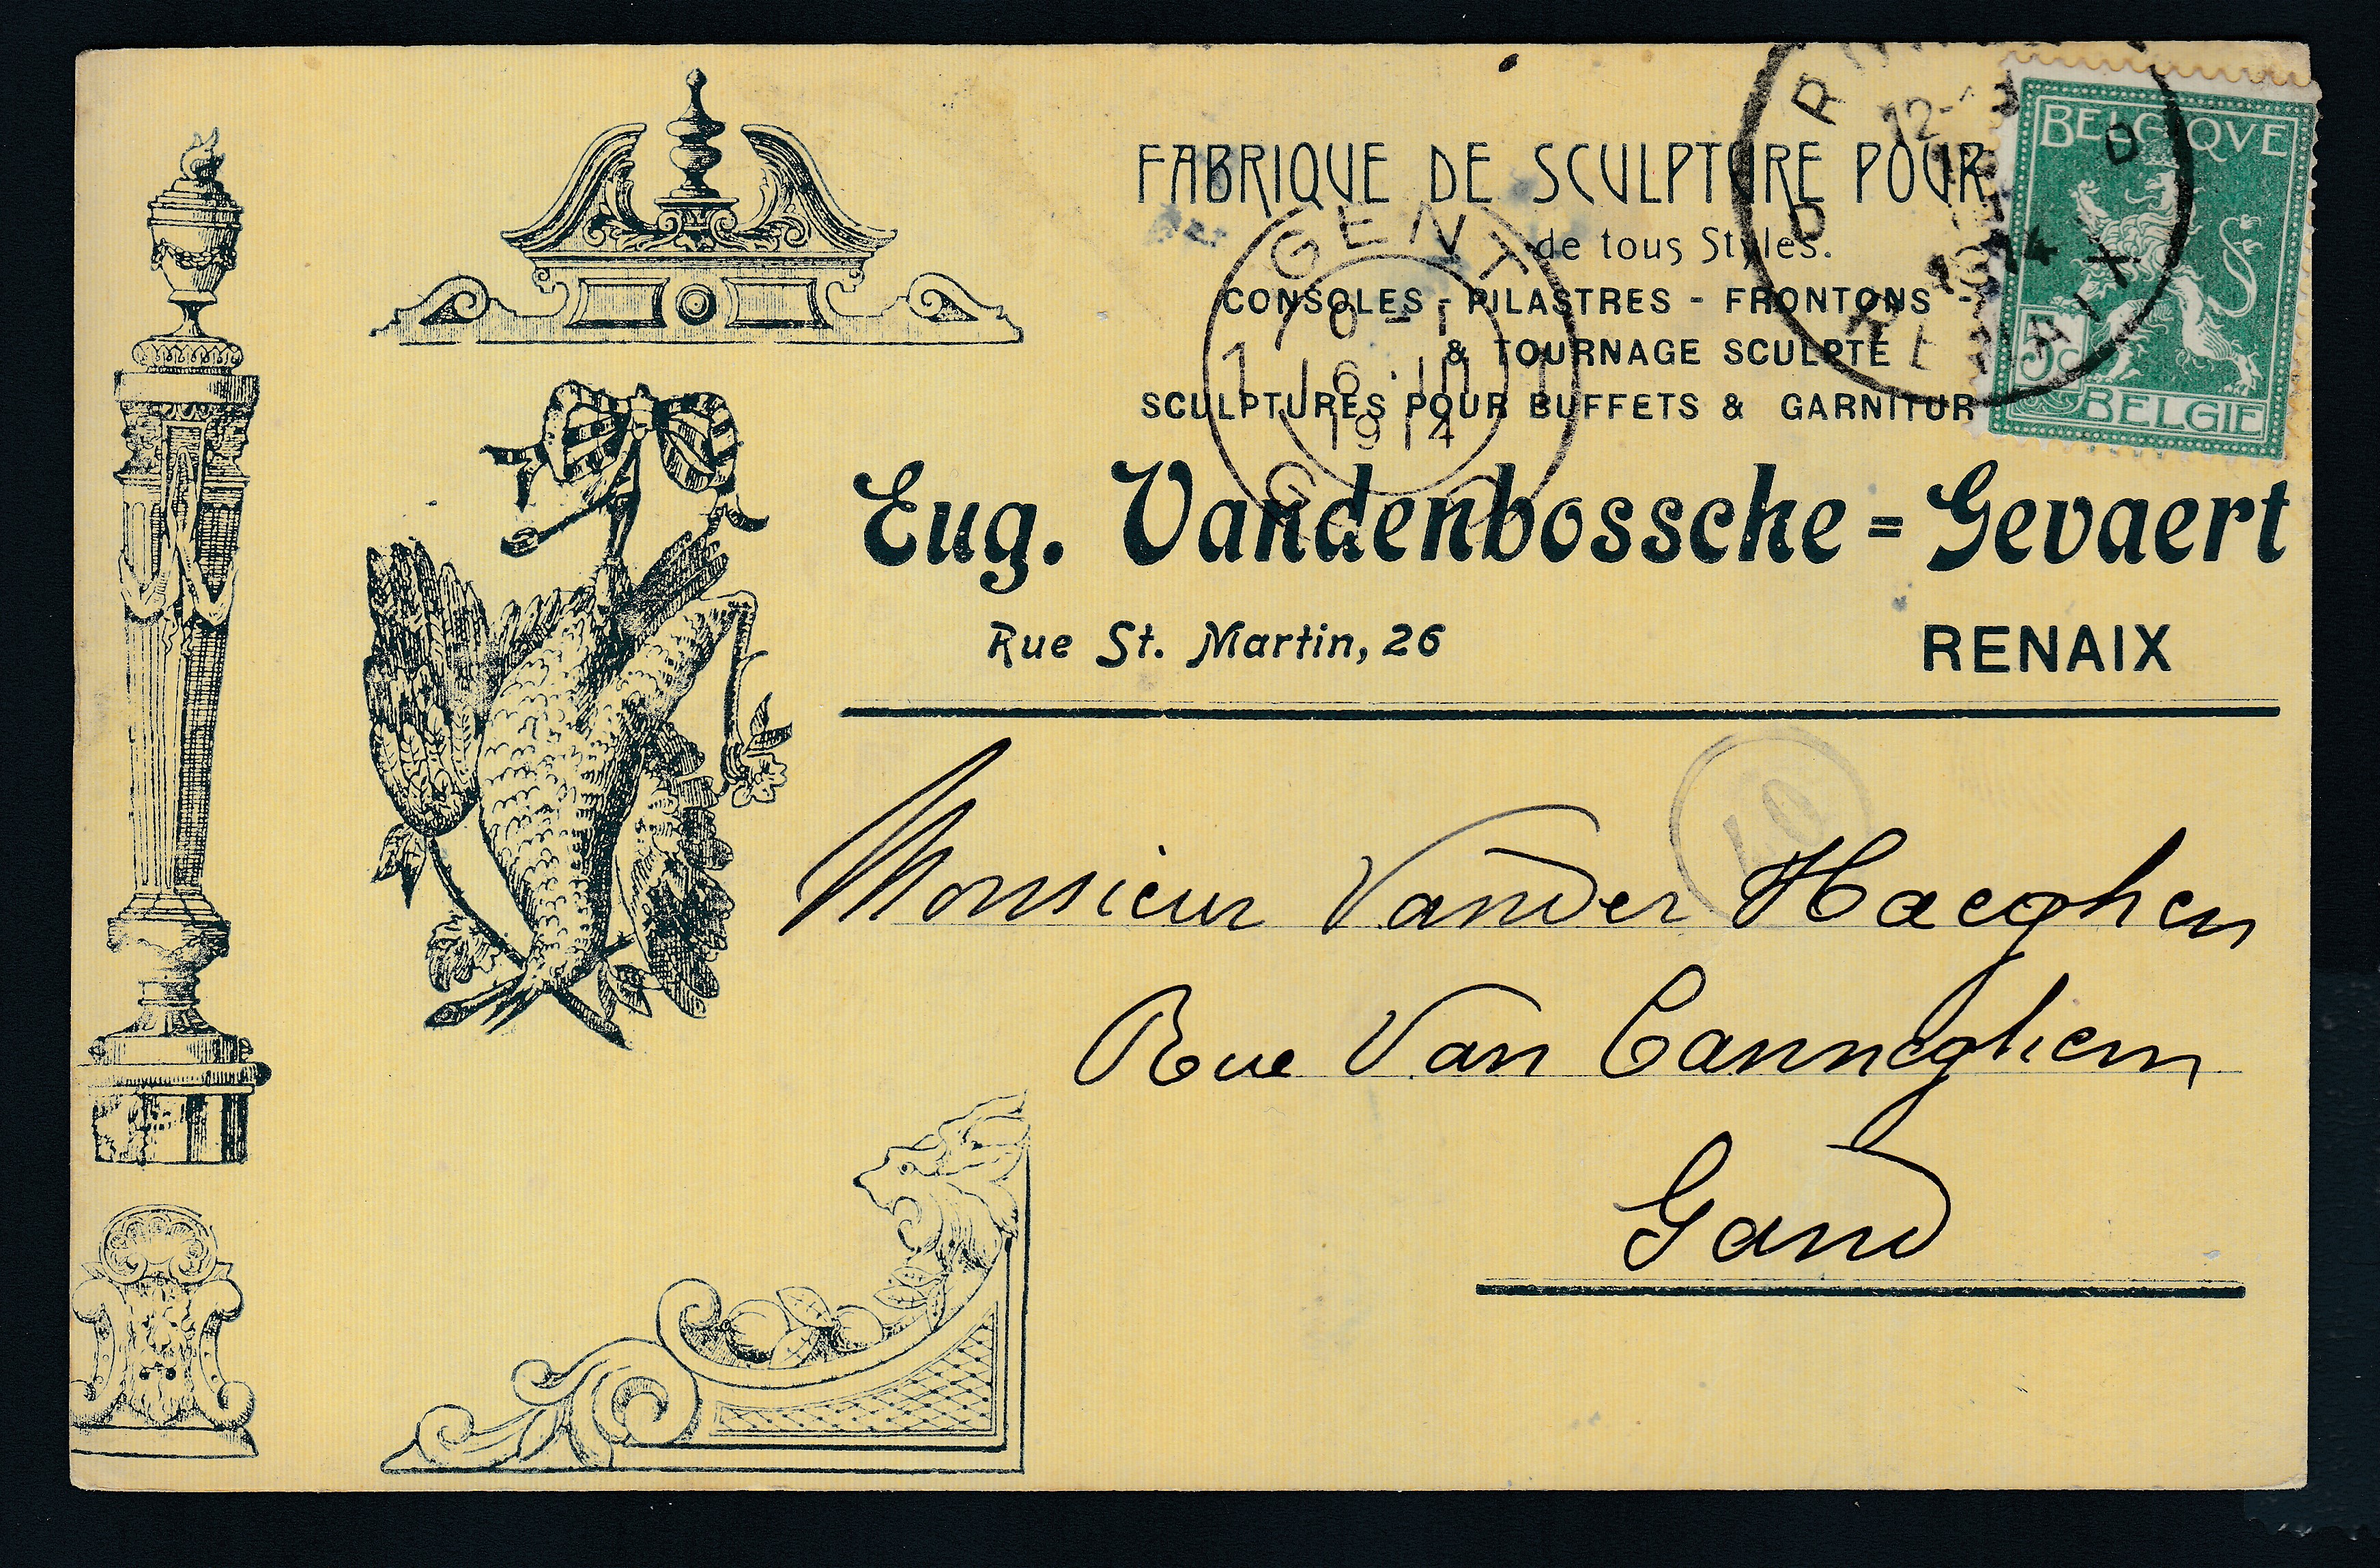 FABRIQUE DE SCULPTURE POUR
de tous Styles.
CONSOLES - PILASTRES - FRONTONS
& TOURNAGE SCULPTÉ
SCULPTURES POUR BUFFETS & GARNITUR
Eug. Vandenbossche = Gevaert
Rue St. Martin, 26 RENAIX
BELGIQVE
5c
BELGIE
RENAIX
GENT
16 · III
1914
Monsieur Vander Haeghen
Rue Van Canneghem
Gand